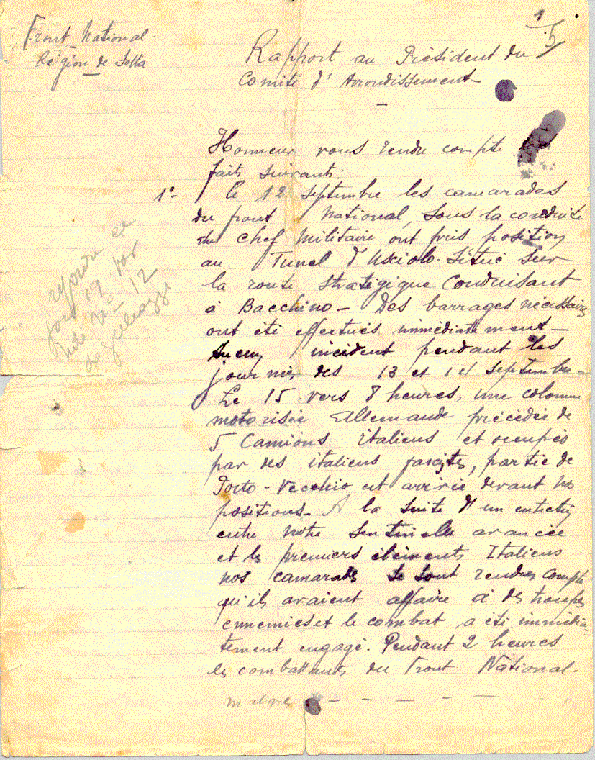 Front National
Région de Sotta
Rapport au Président du
Comité d'Arrondissement
Honneur vous rendre compte
faits suivants.
1° Le 12 septembre les camarades
du front National sous la conduite
du chef Militaire ont pris position
au Tunel d'Usciolo. Situé sur
la route stratégique Conduisant
à Bacchino - Des barrages nécessaires
ont été effectués immédiatement
Aucun incident pendant les
journées des 13 et 14 septembre.
Le 15 vers 8 heures, une colonne
motorisée Allemande précédée de
5 Camions italiens et occupés
par des italiens fascistes, partie de
Porto-Vecchio est arrivée devant nos
positions. A la suite d'un entretien
entre notre sentinelle avancée
et les premiers éléments Italiens
nos camarades se sont rendus compte
qu'ils avaient affaire à des troupes
ennemies et le combat a été immédia
tement engagé. Pendant 2 heures
les combattants du Front National
malgré